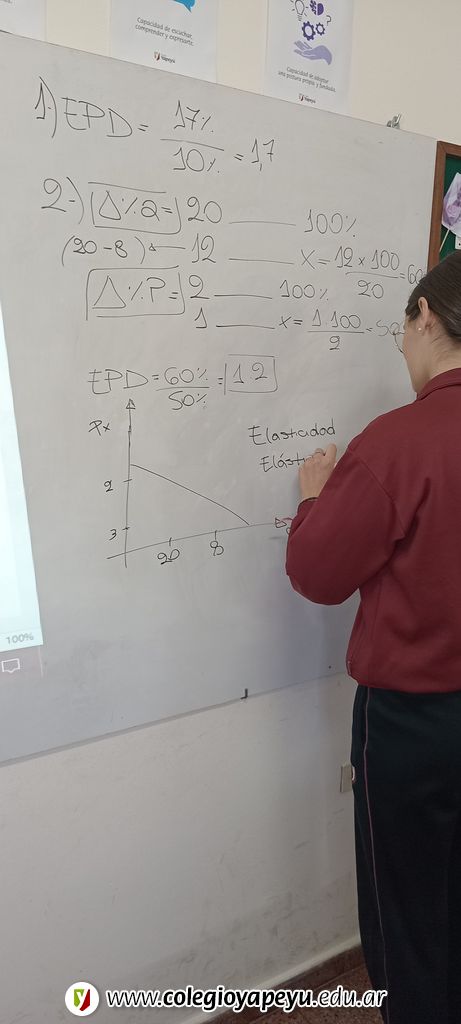 Capacidad de escuchar, comprender y expresarse.
Capacidad de adoptar una postura propia y fundada.
1-) EPD = 17% / 10% = 1,7
2-) Δ%Q = 20 — 100%
(20-8) ← 12 — x = 12 × 100 / 20 =
Δ%P = 2 — 100%
1 — x = 1.100 / 2 =
EPD = 60% / 50% = 1.2
Px
Elasticidad
2
3
20
8
100%
www.colegioyapeyu.edu.ar